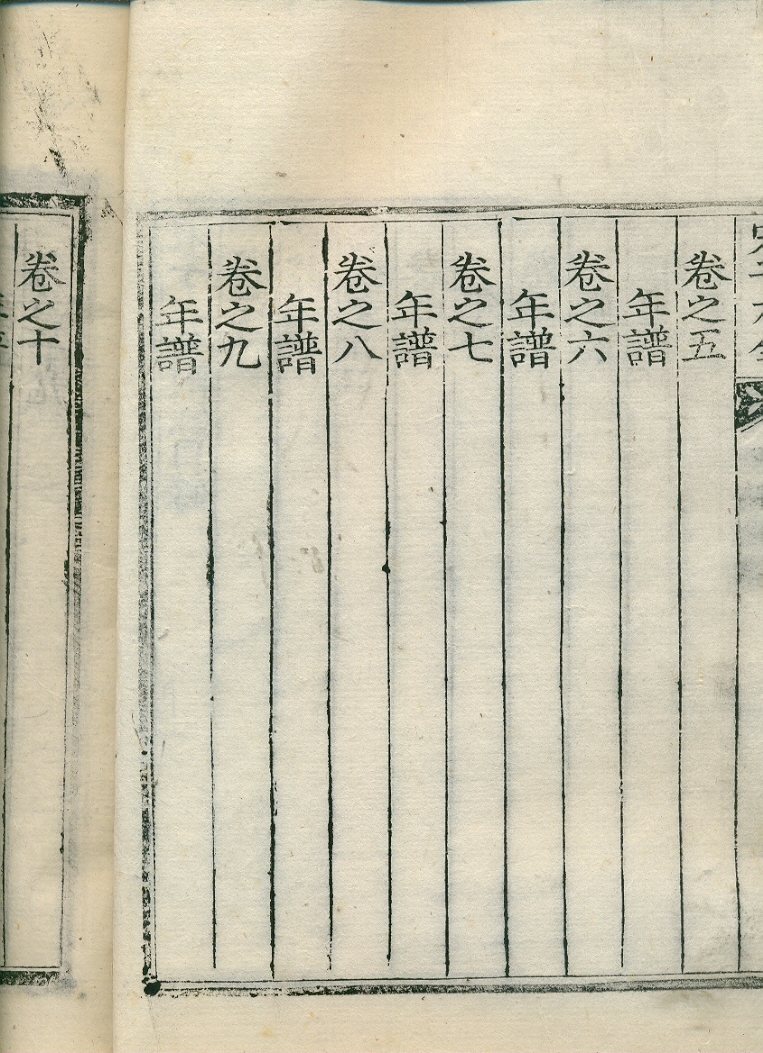 卷之五
年譜
卷之六
年譜
卷之七
年譜
卷之八
年譜
卷之九
年譜
卷之十